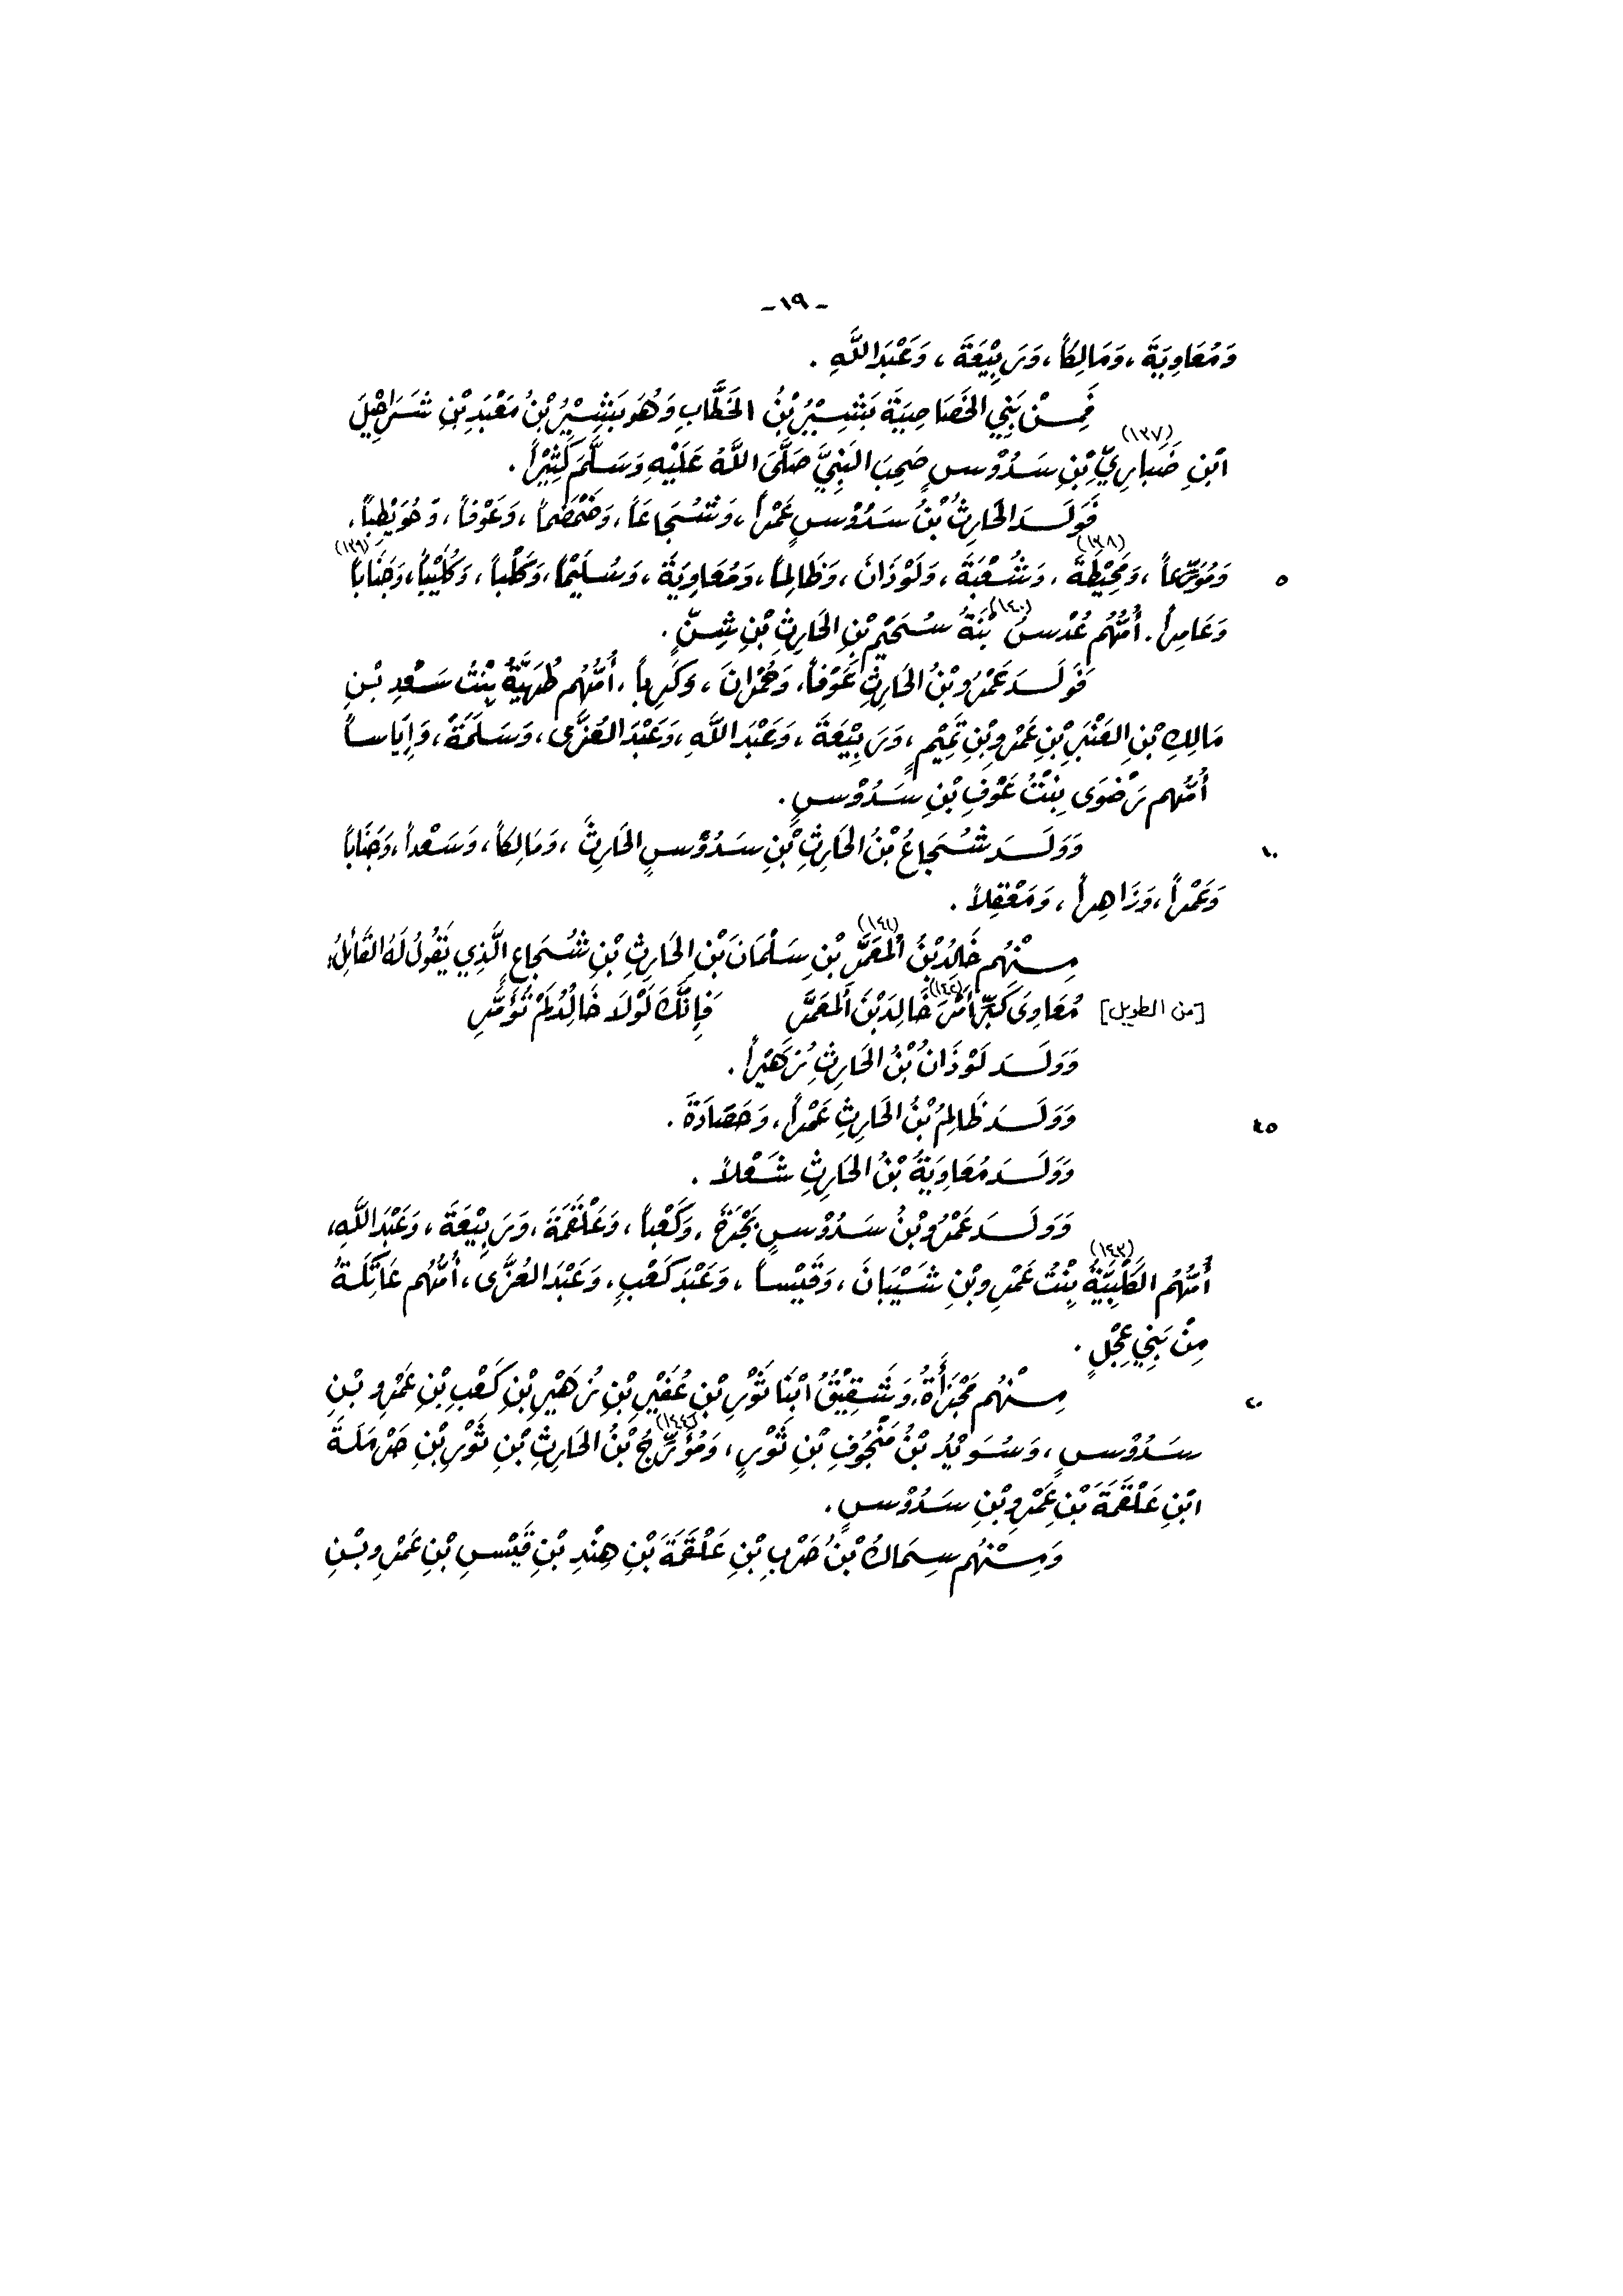 -١٩-
وَمُعَاوِيَةَ ، وَمَالِكاً ، وَرَبِيْعَةَ ، وَعَبْدَ اللَّهِ .
فَمِنْ بَنِي الخَصَاصِيَة بَشِيْرُ بْنُ الخَطَّابِ وَهُوَ بَشِيْرُ بْنُ مَعْبَدِ بْنِ شَرَاحِيْلَ
ابْنِ ضَبارِيِّ (١٣٧) بْنِ سَدُوْسٍ صَحِبَ النَّبِيَّ صَلَّى اللَّهُ عَلَيْهِ وَسَلَّمَ كَثِيْراً .
فَوَلَدَ الحَارِثُ بْنُ سَدُوْسٍ عَمْراً ، وَشُجَاعاً ، وَضَمْضَماً ، وَعَوْفاً ، وَحُوَيْطِباً ،
٥ وَمُوَرِّعاً ، وَمُحِيْطَةَ (١٣٨) ، وَشُعْبَةَ ، وَلَوْذَانَ ، وَظَالِماً ، وَمُعَاوِيَةَ ، وَسُلَيْماً ، وَكَلْباً ، وَكُلَيْباً ، وَجَنَاباً (١٣٩)
وَعَامِراً . أُمُّهُم عُدْسُ (١٤٠) بْنَةُ سُحَيْمِ بْنِ الحَارِثِ بْنِ شِنٍّ .
فَوَلَدَ عَمْرُو بْنُ الحَارِثِ عَوْفاً ، وَحُمْرَانَ ، وَكَرِباً ، أُمُّهُم طُهَيَّةُ بِنْتُ سَعْدِ بْنِ
مَالِكِ بْنِ العَنْبَرِ بْنِ عَمْرِو بْنِ تَمِيْمٍ ، وَرَبِيْعَةَ ، وَعَبْدَ اللَّهِ ، وَعَبْدَ العُزَّى ، وَسَلَمَةَ ، وَإِيَاساً
أُمُّهُم رَضْوَى بِنْتُ عَوْفِ بْنِ سَدُوْسٍ .
١٠ وَوَلَدَ شُجَاعُ بْنُ الحَارِثِ بْنِ سَدُوْسٍ الحَارِثَ ، وَمَالِكاً ، وَسَعْداً ، وَجَنَاباً
وَعَمْراً ، وَزَاهِراً ، وَمَعْقِلاً .
مِنْهُم خَالِدُ بْنُ المُعَمَّرِ (١٤١) بْنِ سَلْمَانَ بْنِ الحَارِثِ بْنِ شُجَاعٍ الَّذِي يَقُولُ لَهُ القَائِلُ:
[من الطويل] مُعَاوِيَ كَبِّرْ أَمْرَ (١٤٢) خَالِدَ بْنَ المُعَمَّرِ فَإِنَّكَ لَوْلَا خَالِدُ لَمْ تُؤَمَّرِ
وَوَلَدَ لَوْذَانُ بْنُ الحَارِثِ زُهَيْراً .
١٥ وَوَلَدَ ظَالِمُ بْنُ الحَارِثِ عَمْراً ، وَحَصَادَةَ .
وَوَلَدَ مُعَاوِيَةُ بْنُ الحَارِثِ شَعْلاً .
وَوَلَدَ عَمْرُو بْنُ سَدُوْسٍ بَجْرَةَ ، وَكَعْباً ، وَعَلْقَمَةَ ، وَرَبِيْعَةَ ، وَعَبْدَ اللَّهِ ،
أُمُّهُمُ الكَلْبِيَّةُ (١٤٣) بِنْتُ عَمْرِو بْنِ شَيْبَانَ ، وَقَيْساً ، وَعَبْدَ كَعْبٍ ، وَعَبْدَ العُزَّى ، أُمُّهُم عَاتِكَةُ
مِنْ بَنِي عِجْلٍ .
٢٠ مِنْهُم مَجْزَأَةُ ، وَشَقِيْقُ ابْنَا ثَوْرِ بْنِ عُفَيْرِ بْنِ زُهَيْرِ بْنِ كَعْبِ بْنِ عَمْرِو بْنِ
سَدُوْسٍ ، وَسُوَيْدُ بْنُ مَنْجُوْفِ بْنِ ثَوْرٍ ، وَمُؤَرِّجُ (١٤٤) بْنُ الحَارِثِ بْنِ ثَوْرِ بْنِ حَرْمَلَةَ
ابْنِ عَلْقَمَةَ بْنِ عَمْرِو بْنِ سَدُوْسٍ .
وَمِنْهُم سِمَاكُ بْنُ حَرْبِ بْنِ عَلْقَمَةَ بْنِ هِنْدِ بْنِ قَيْسِ بْنِ عَمْرِو بْنِ